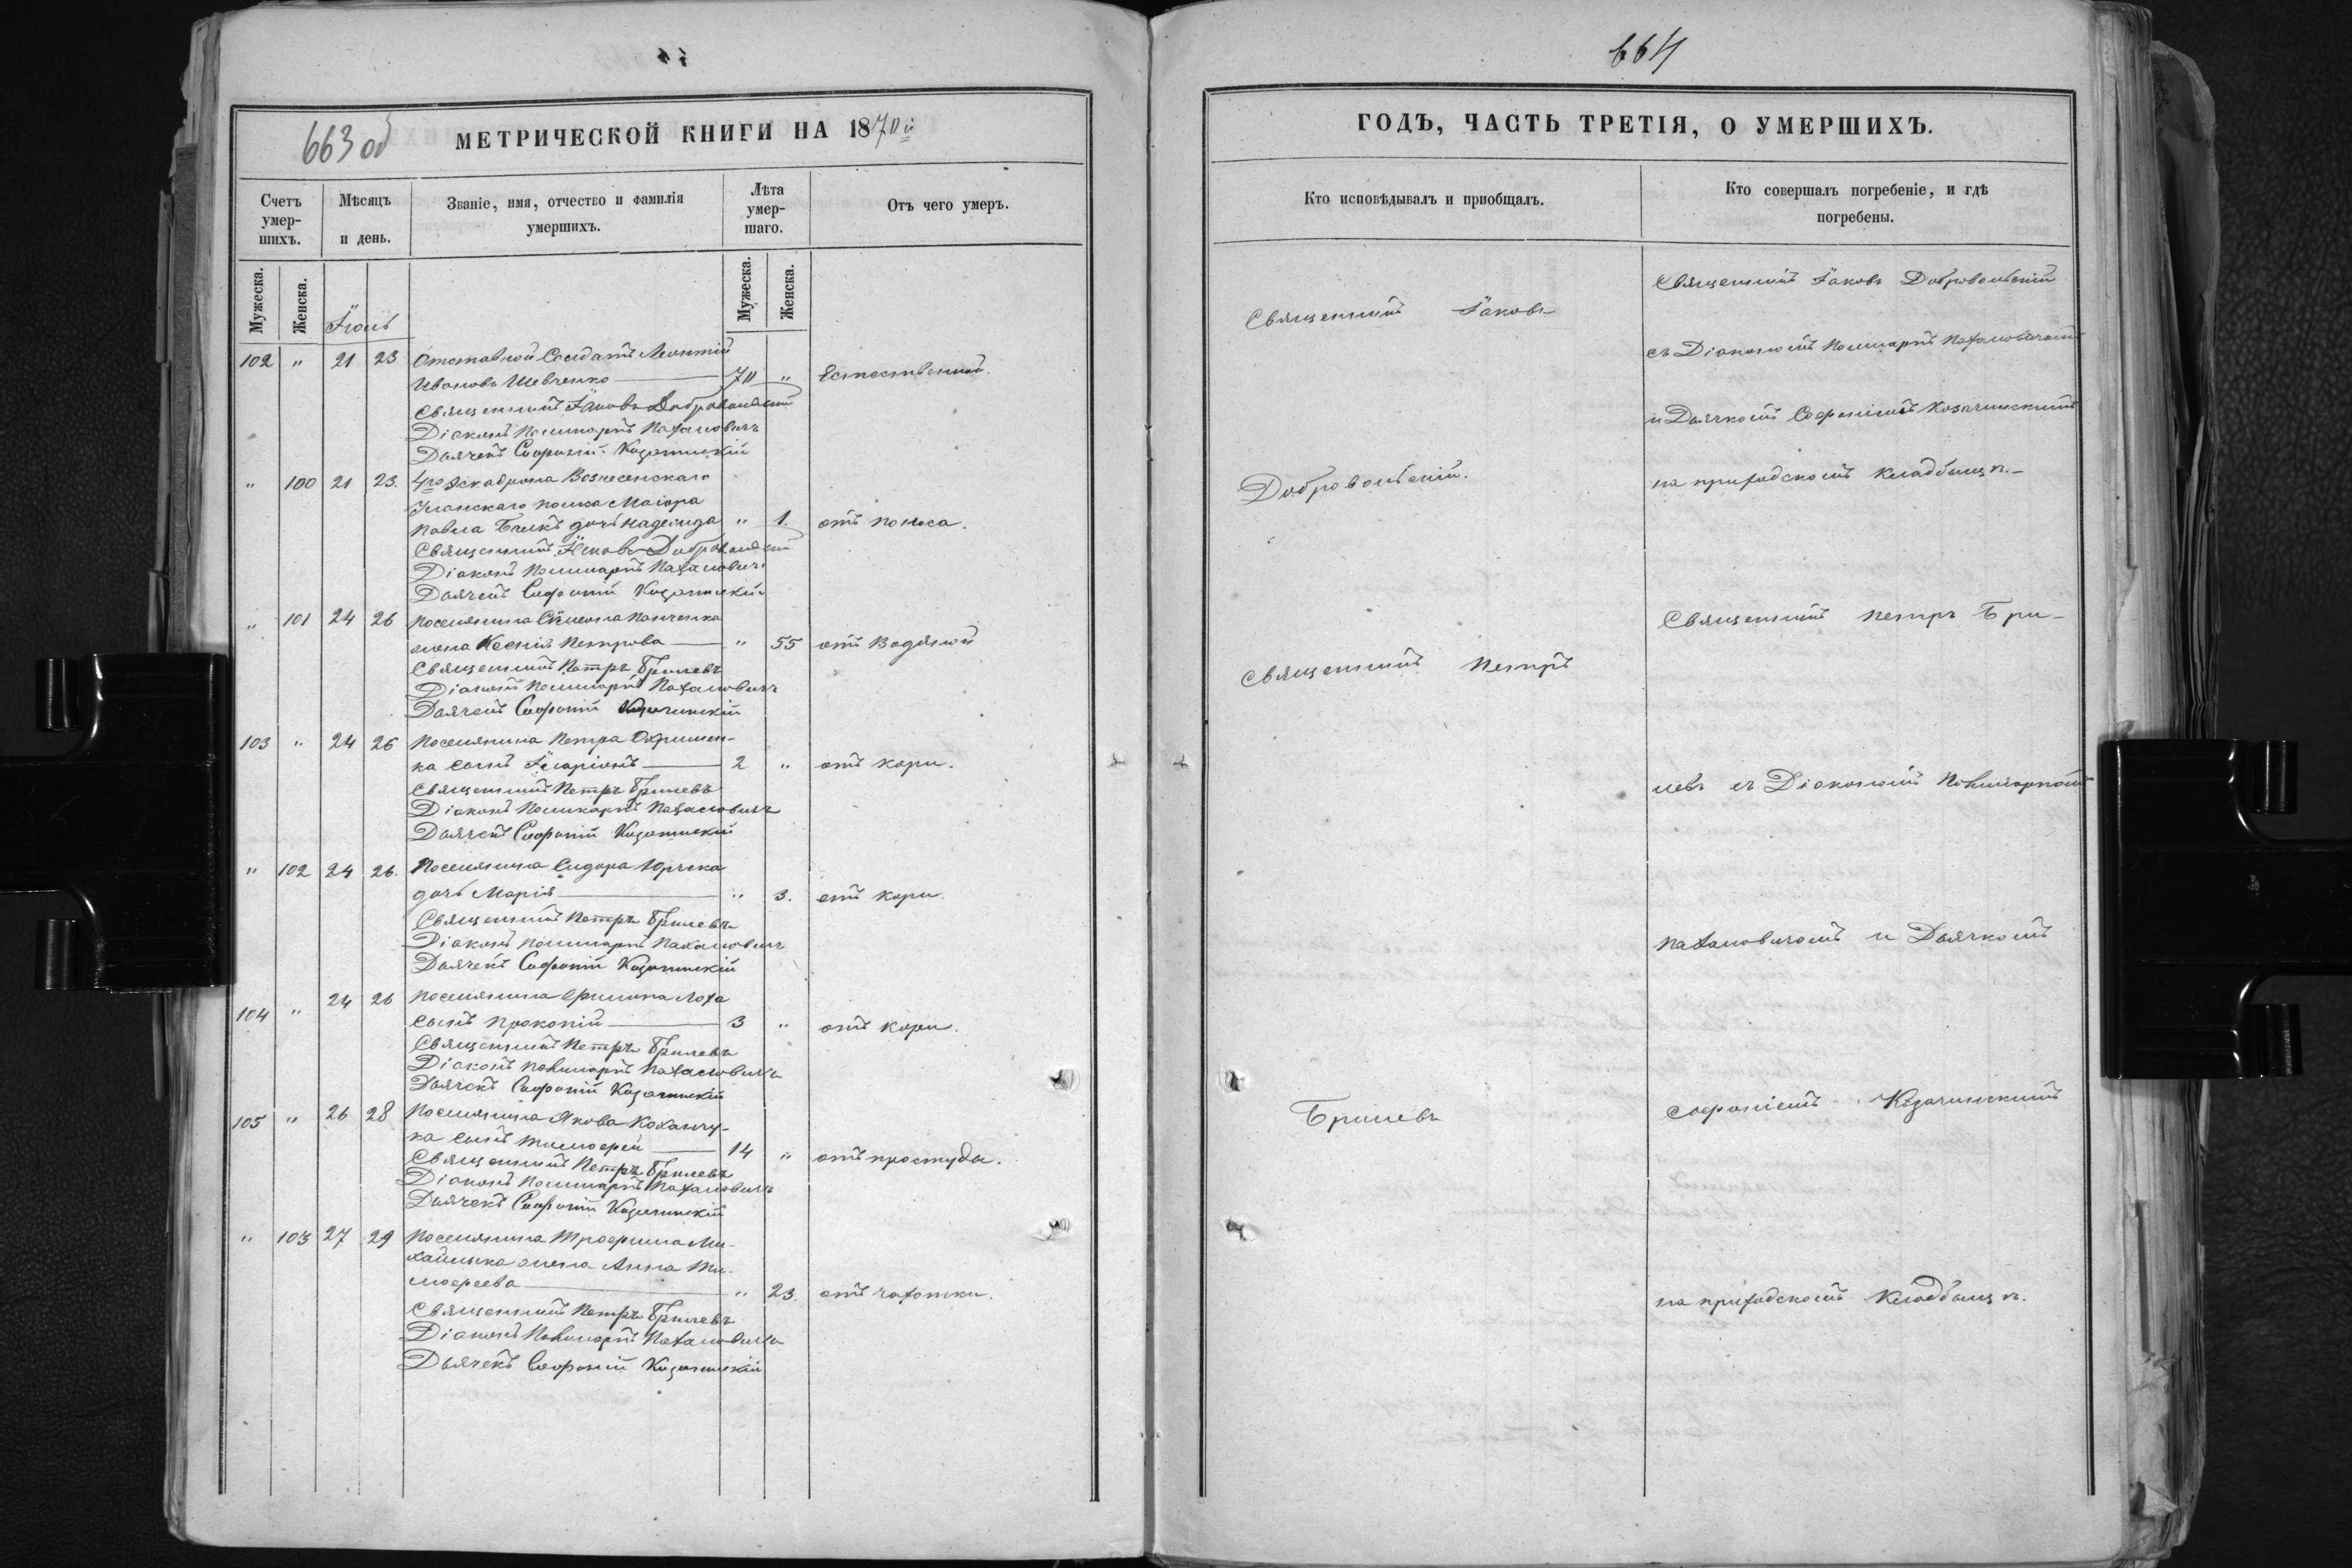 663 об
МЕТРИЧЕСКОЙ КНИГИ НА 1870й
Счетъ умер-шихъ.
Мѣсяцъ и день.
Званіе, имя, отчество и фамилія умершихъ.
Лѣта умер-шаго.
Отъ чего умеръ.
Мужеска.
Женска.
Мужеска.
Женска.
102 " 21 23 Отставной Солдатъ Леонтій
Ивановъ Шевченко 70 " Естественной.
Священникъ Іаковъ Добровольскій
Діаконъ Поликарпъ Пахаловичъ
Дьячекъ Софроній Козачинскій
" 100 21 23. 4го Эскадрона Вознесенскаго
Уланскаго полка Маіора
Павла дочь Надежда " 1. отъ поноса.
Священникъ Іаковъ Добровольскій
Діаконъ Поликарпъ Пахаловичъ
Дьячекъ Софроній Козачинскій
" 101 24 26 Поселянина Симеона Панченка
жена Ксенія Петрова " 55 отъ Водяной
Священникъ Петръ Брилевъ
Діаконъ Поликарпъ Пахаловичъ
Дьячекъ Софроній Козачинскій
103 " 24 26 Поселянина Петра Охримен-
ка сынъ Іларіонъ 2 " отъ кори.
Священникъ Петръ Брилевъ
Діаконъ Поликарпъ Пахаловичъ
Дьячекъ Софроній Козачинскій
" 102 24 26. Поселянина Сидора Юрчка
дочь Марія " 3. отъ кори.
Священникъ Петръ Брилевъ
Діаконъ Поликарпъ Пахаловичъ
Дьячекъ Софроній Козачинскій
104 " 24 26 Поселянина Филипа Лоха
сынъ Прокопій 3 " отъ кори.
Священникъ Петръ Брилевъ
Діаконъ Поликарпъ Пахаловичъ
Дьячекъ Софроній Козачинскій
105 " 26 28 Поселянина Якова Коханчу-
ка сынъ Тимофей 14 " отъ простуды.
Священникъ Петръ Брилевъ
Діаконъ Поликарпъ Пахаловичъ
Дьячекъ Софроній Козачинскій
" 103 27 29 Поселянина Трофима Ми-
хайлика жена Анна Ти-
мофеева " 23. отъ чахотки.
Священникъ Петръ Брилевъ
Діаконъ Поликарпъ Пахаловичъ
Дьячекъ Софроній Козачинскій
664
ГОДЪ, ЧАСТЬ ТРЕТІЯ, О УМЕРШИХЪ.
Кто исповѣдывалъ и пріобщалъ.
Кто совершалъ погребеніе, и гдѣ погребены.
Священникъ Іаковъ
Добровольскій.
Священникъ Петръ
Брилевъ
Священникъ Іаковъ Добровольскій
съ Діакономъ Поликарпъ Пахаловичемъ
и Дьячкомъ Софроніемъ Козачинскимъ
на приходскомъ кладбищѣ.-
Священникъ Петръ Бри-
левъ съ Діакономъ Поликарпомъ
Пахаловичемъ и Дьячкомъ
Софроніемъ Козачинскимъ
на приходскомъ кладбищѣ.